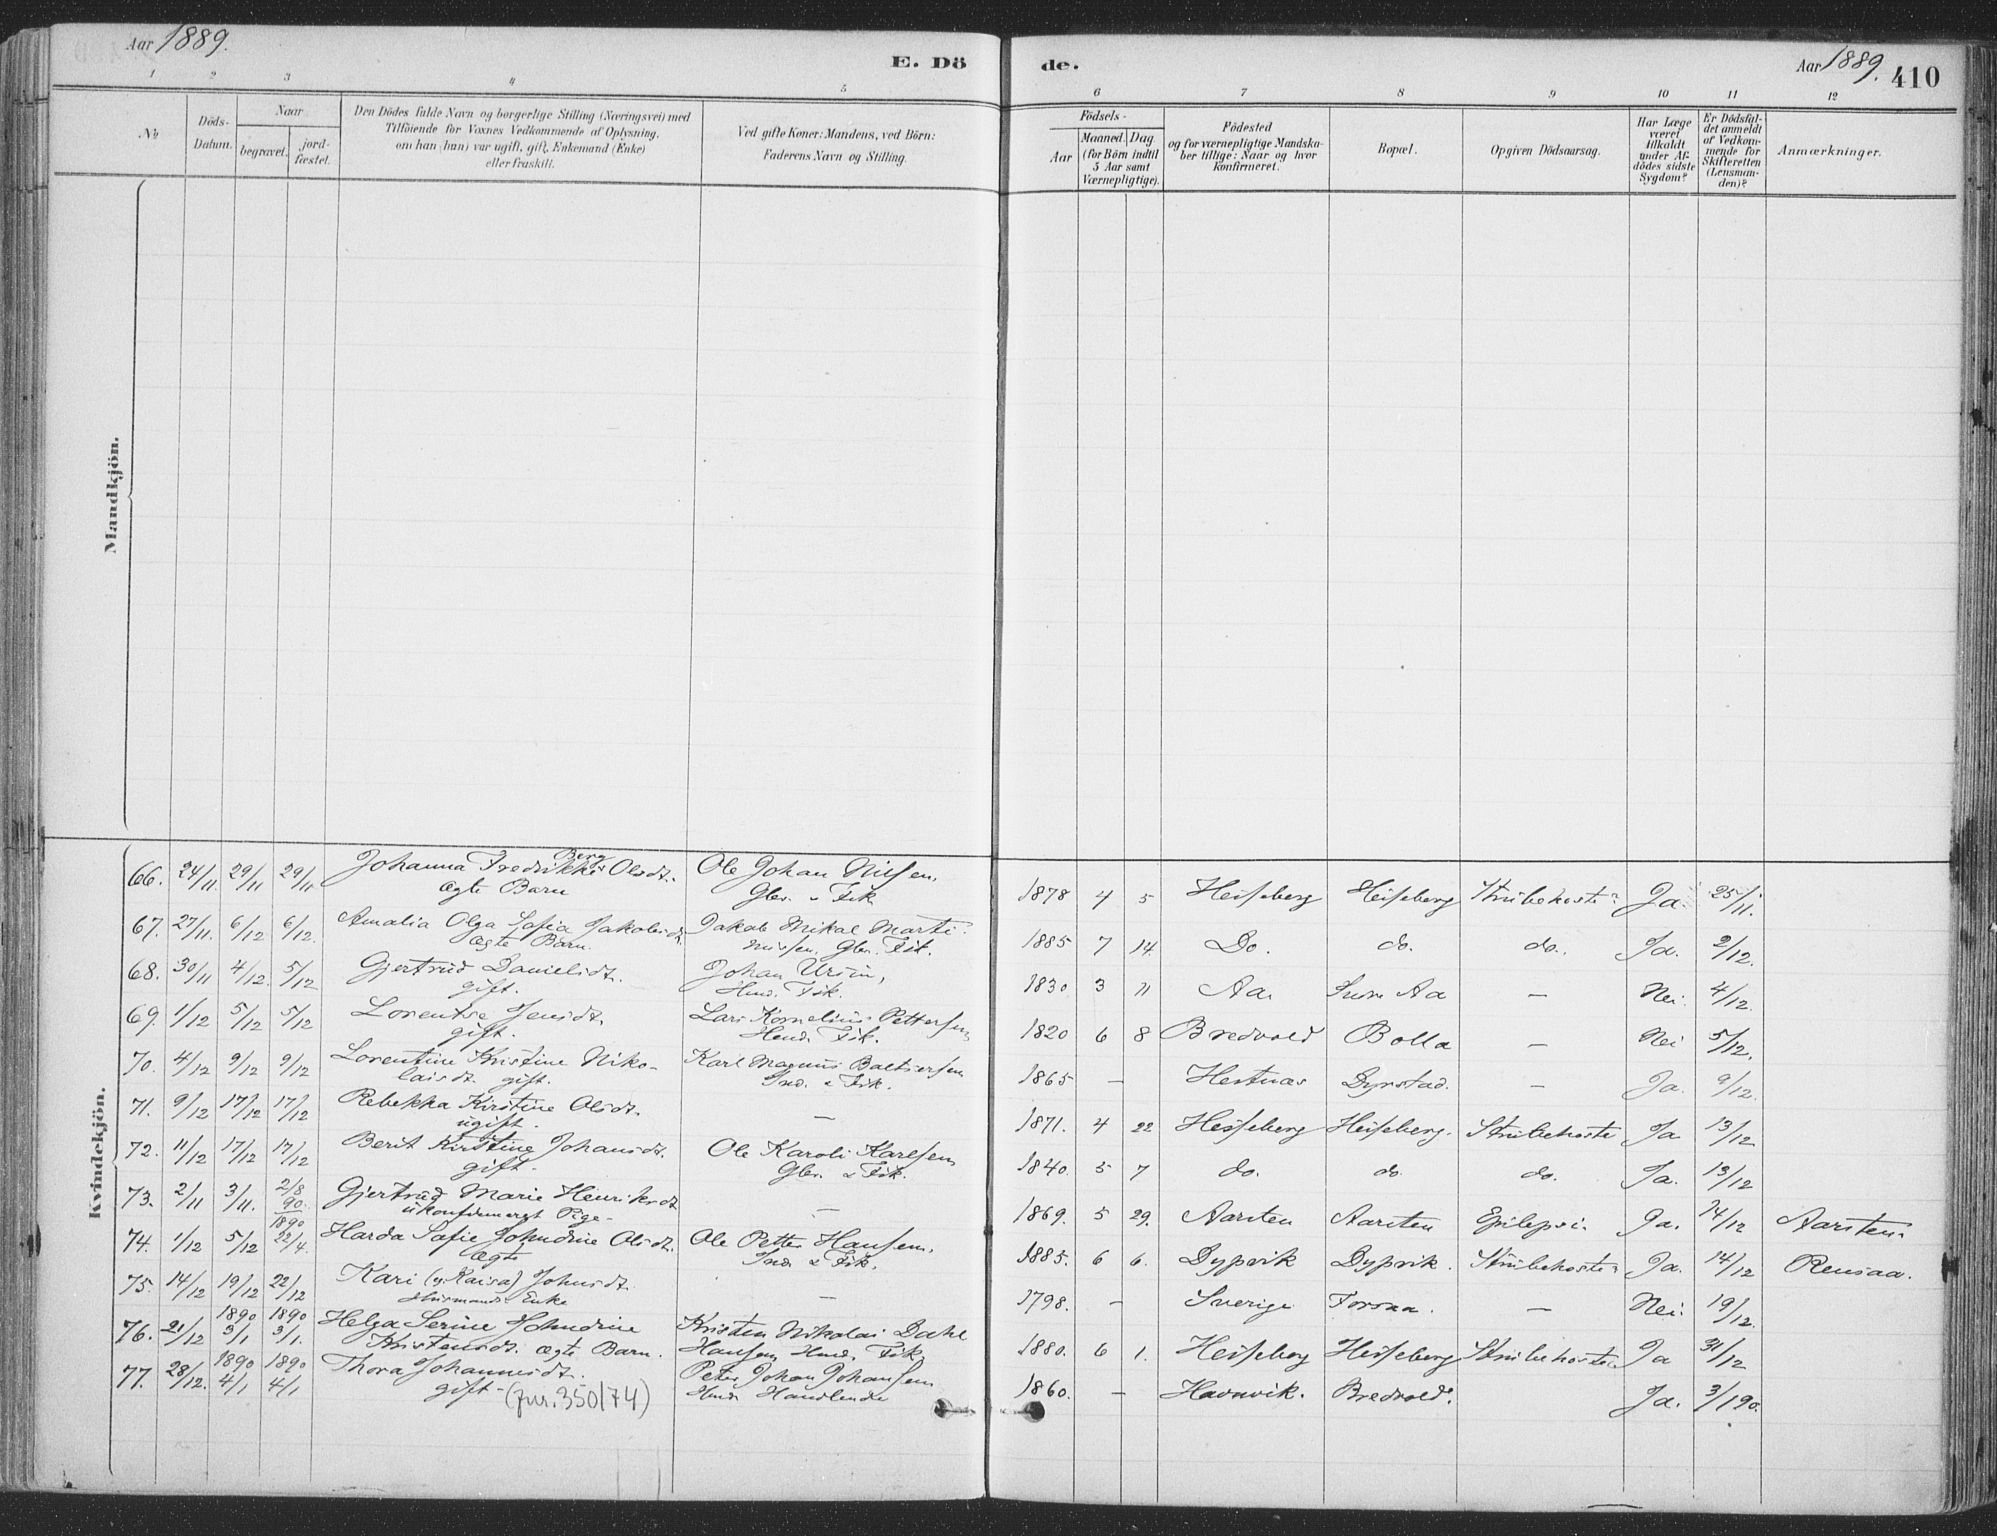 Aar 1889.
E. Dö
de.
Aar 1889.
410
1 2 3 4 5
6 7 8 9 10 11 12
No
Döds-
Datum.
Naar
begravet.
jord-
fæstet.
Den Dödes fulde Navn og borgerlige Stilling (Næringsvei) med
Tilföiende for Voxnes Vedkommende af Oplysning,
om han (hun) var ugift, gift, Enkemand (Enke)
eller fraskilt.
Ved gifte Koner: Mandens, ved Börn:
Faderens Navn og Stilling.
Födsels-
Aar
Maaned. Dag.
(for Börn indtil
5 Aar samt
Værnepligtige).
Födested
og for værnepligtige Mandska-
ber tillige: Naar og hvor
konfirmeret.
Bopæl.
Opgiven Dödsaarsag.
Har Læge
været
tilkaldt
under Af-
dödes sidste
Sygdom?
Er Dödsfal-
det anmeldt
af Vedkom-
mende for
Skifteretten
(Lensman-
den)?
Anmærkninger.
Mandkjön.
Kvindekjön.
Berg
66. 24/11 29/11 29/11 Johanna Fredrikke Olsdt. Ole Johan Nilsen,
ægte Barn Gbr. & Fisk
1878 4 5 Heisseberg Heisseberg Strubehoste Ja. 25/11.
67. 27/11. 6/12 6/12. Amalia Olga Sofia Jakobsdt. Jakob Mikal Marti-
ægte Barn. nussen, Gbr. Fisk.
1885 7 14. Do. do. do. Ja. 2/12.
68. 30/11 4/12. 5/12 Gjertrud Danielsdt. Johan Ursin,
gift. Husm. Fisk.
1830 3 11 Aa. Aa — Nei. 4/12.
69. 1/12 5/12 5/12 Lorentse Jensdt. Lars Kornelius Pettersen
gift. Fisk.
1820 6 8 Bredvold Bolla — Nei 5/12.
70. 4/12 9/12 9/12 Lorentine Kristine Niko- Karl Magnus Baltsersen
laisdt. gift. Ind. & Fisk.
1865 — Hestnæs Dyrstad. — Ja. 9/12.
71. 9/12 17/12 17/12 Rebekka Kirstine Olsdt.
ugift. —
1871. 4 22 Heisseberg Heisseberg. Strubehoste Ja 13/12
72. 11/12 17/12 17/12 Berit Kirstine Johansdt. Ole Karoli Karlsen
gift. Gbr. & Fisk.
1840. 5 7 do. do do. Ja. 13/12
73. 2/11 3/11. 2/8 90. Gjertrud Marie Henriksdt.
ukonfirmeret Pige —
1869. 5 29. Aarsten Aarsten Epilepsi. Ja. 14/12 Aarsten.
1890
74. 1/12 5/12 22/4. Harda Sofie Johndine Olsdt. Ole Petter Hansen,
ægte Ind. & Fisk.
1885. 6 6. Dypvik Dypvik. Strubehoste Ja. 14/12 Rensaa.
75. 14/12 19/12 22/12 Kari (v. Kaisa) Johnsdt.
Husmands Enke —
1798. — Sverige Forsaa. — Nei. 19/12.
1890 1890
76. 21/12 3/1 3/1. Helga Serine Johndine Kristen Nikolai Dahl
Kristensdt. ægte Barn. Hansen, Husm. Fisk.
1880. 6 1. Heisseberg Heisseberg Strubehoste Ja 31/12
1890 1890
77. 28/12. 4/1 4/1 Thora Johannesdt. Peter Johan Johansen
gift — (jur. 350/74) Handlende
1860. — Havnvik. Bredvold. Ja. 3/1 90.